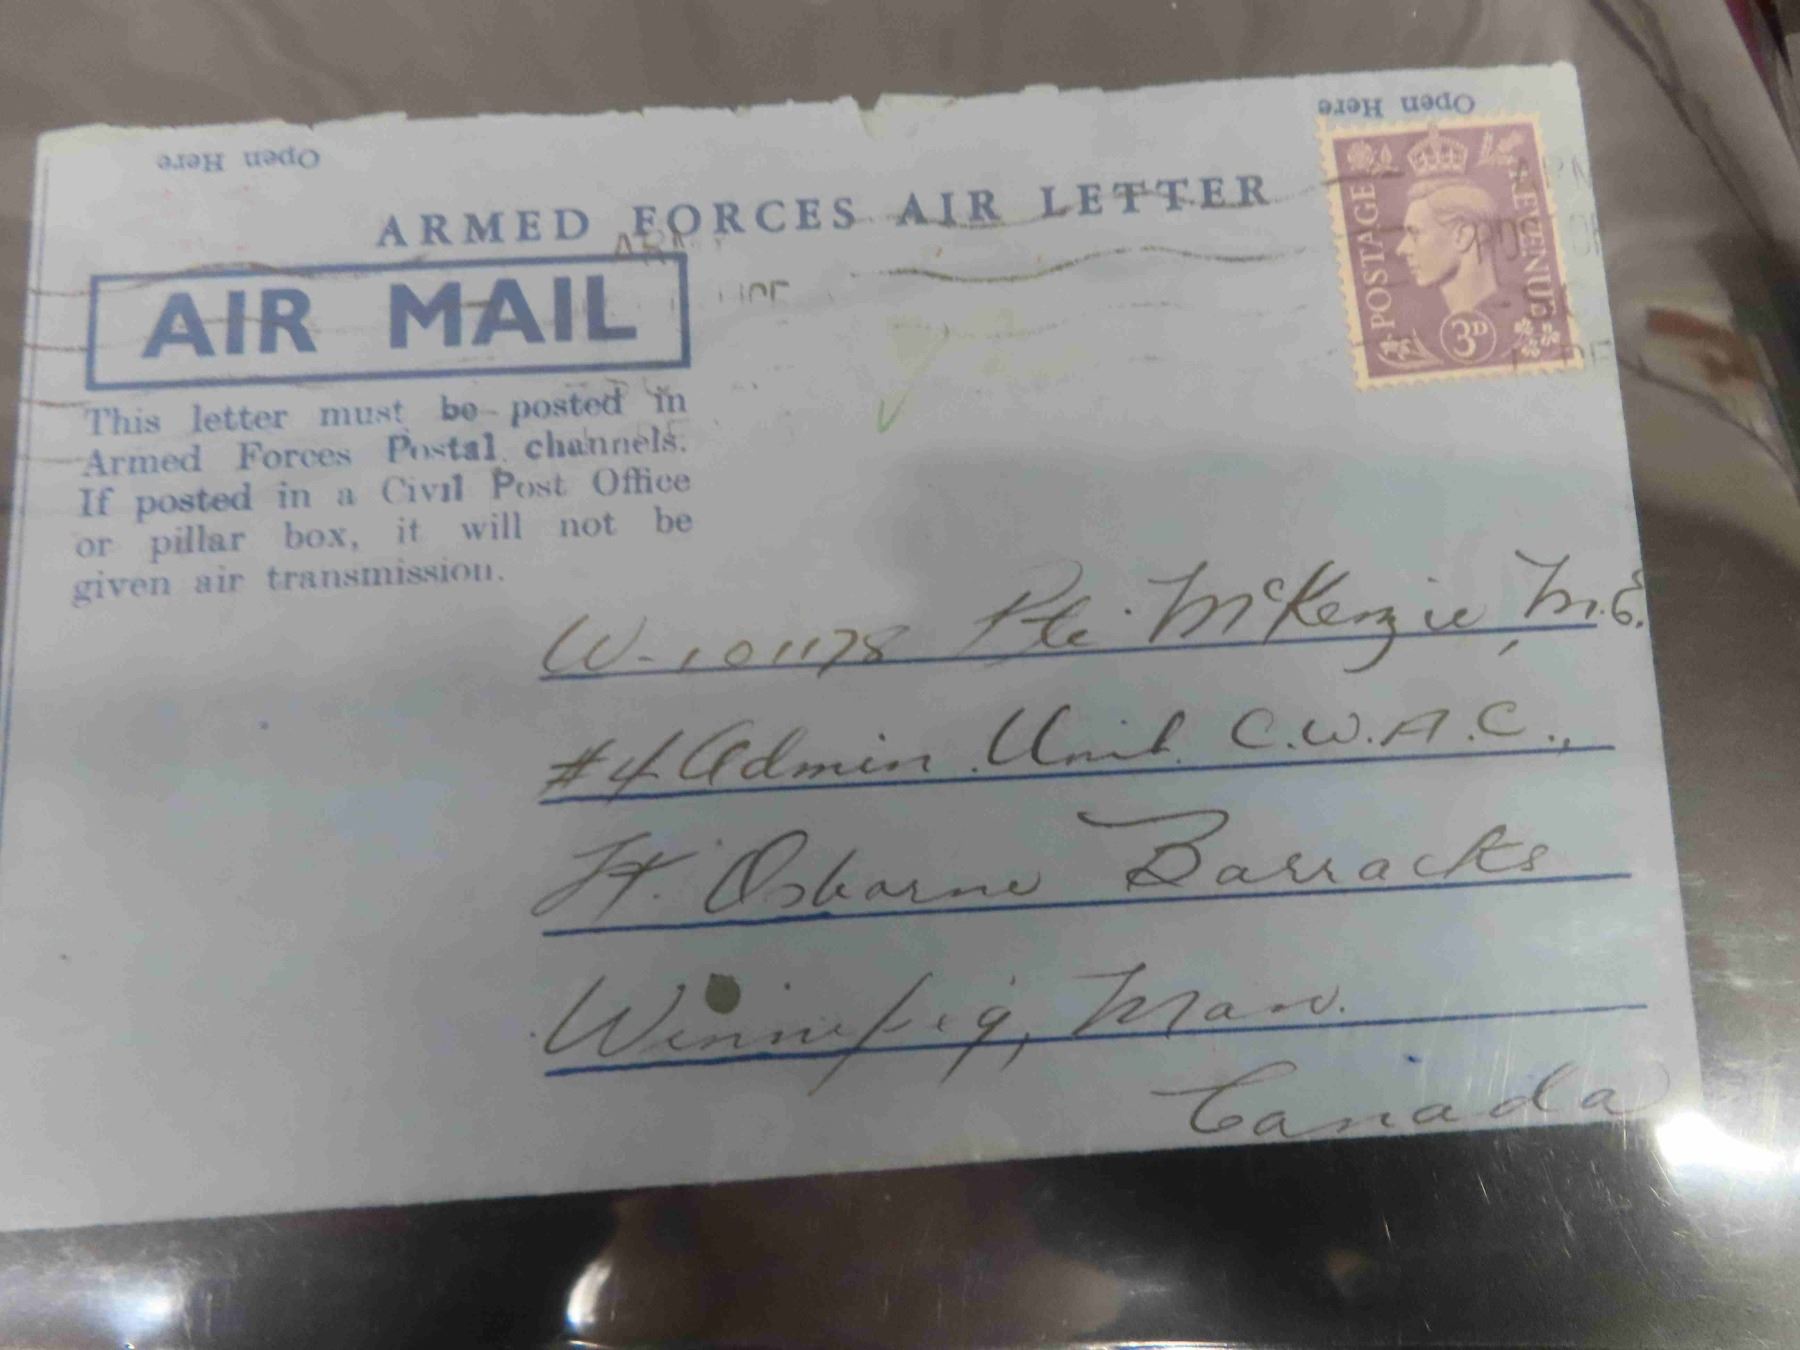 Open Here
Open Here
ARMED FORCES AIR LETTER
AIR MAIL
POSTAGE
REVENUE
3D
This letter must be posted in
Armed Forces Postal channels.
If posted in a Civil Post Office
or pillar box, it will not be
given air transmission.
W-101178 Pte. McKenzie, M.E.
#4 Admin. Unit C.W.A.C.,
Ft. Osborne Barracks
Winnipeg, Man.
Canada